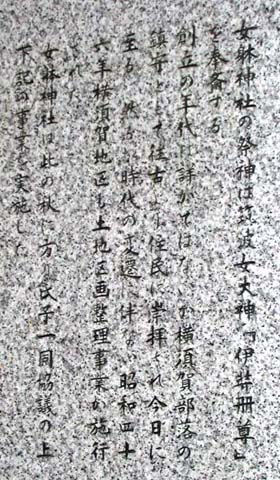 女躰神社の祭神は筑波女大神『伊弉冊尊』
を奉斎する
創立の年代は詳かではないが横須賀部落の
鎮守として往古より住民に崇拝され今日に
至る 然るに時代の変遷に伴ない昭和四十
六年横須賀地区も土地区画整理事業が施行
された
女躰神社は此の秋に方り氏子一同協議の上
下記の事業を実施した